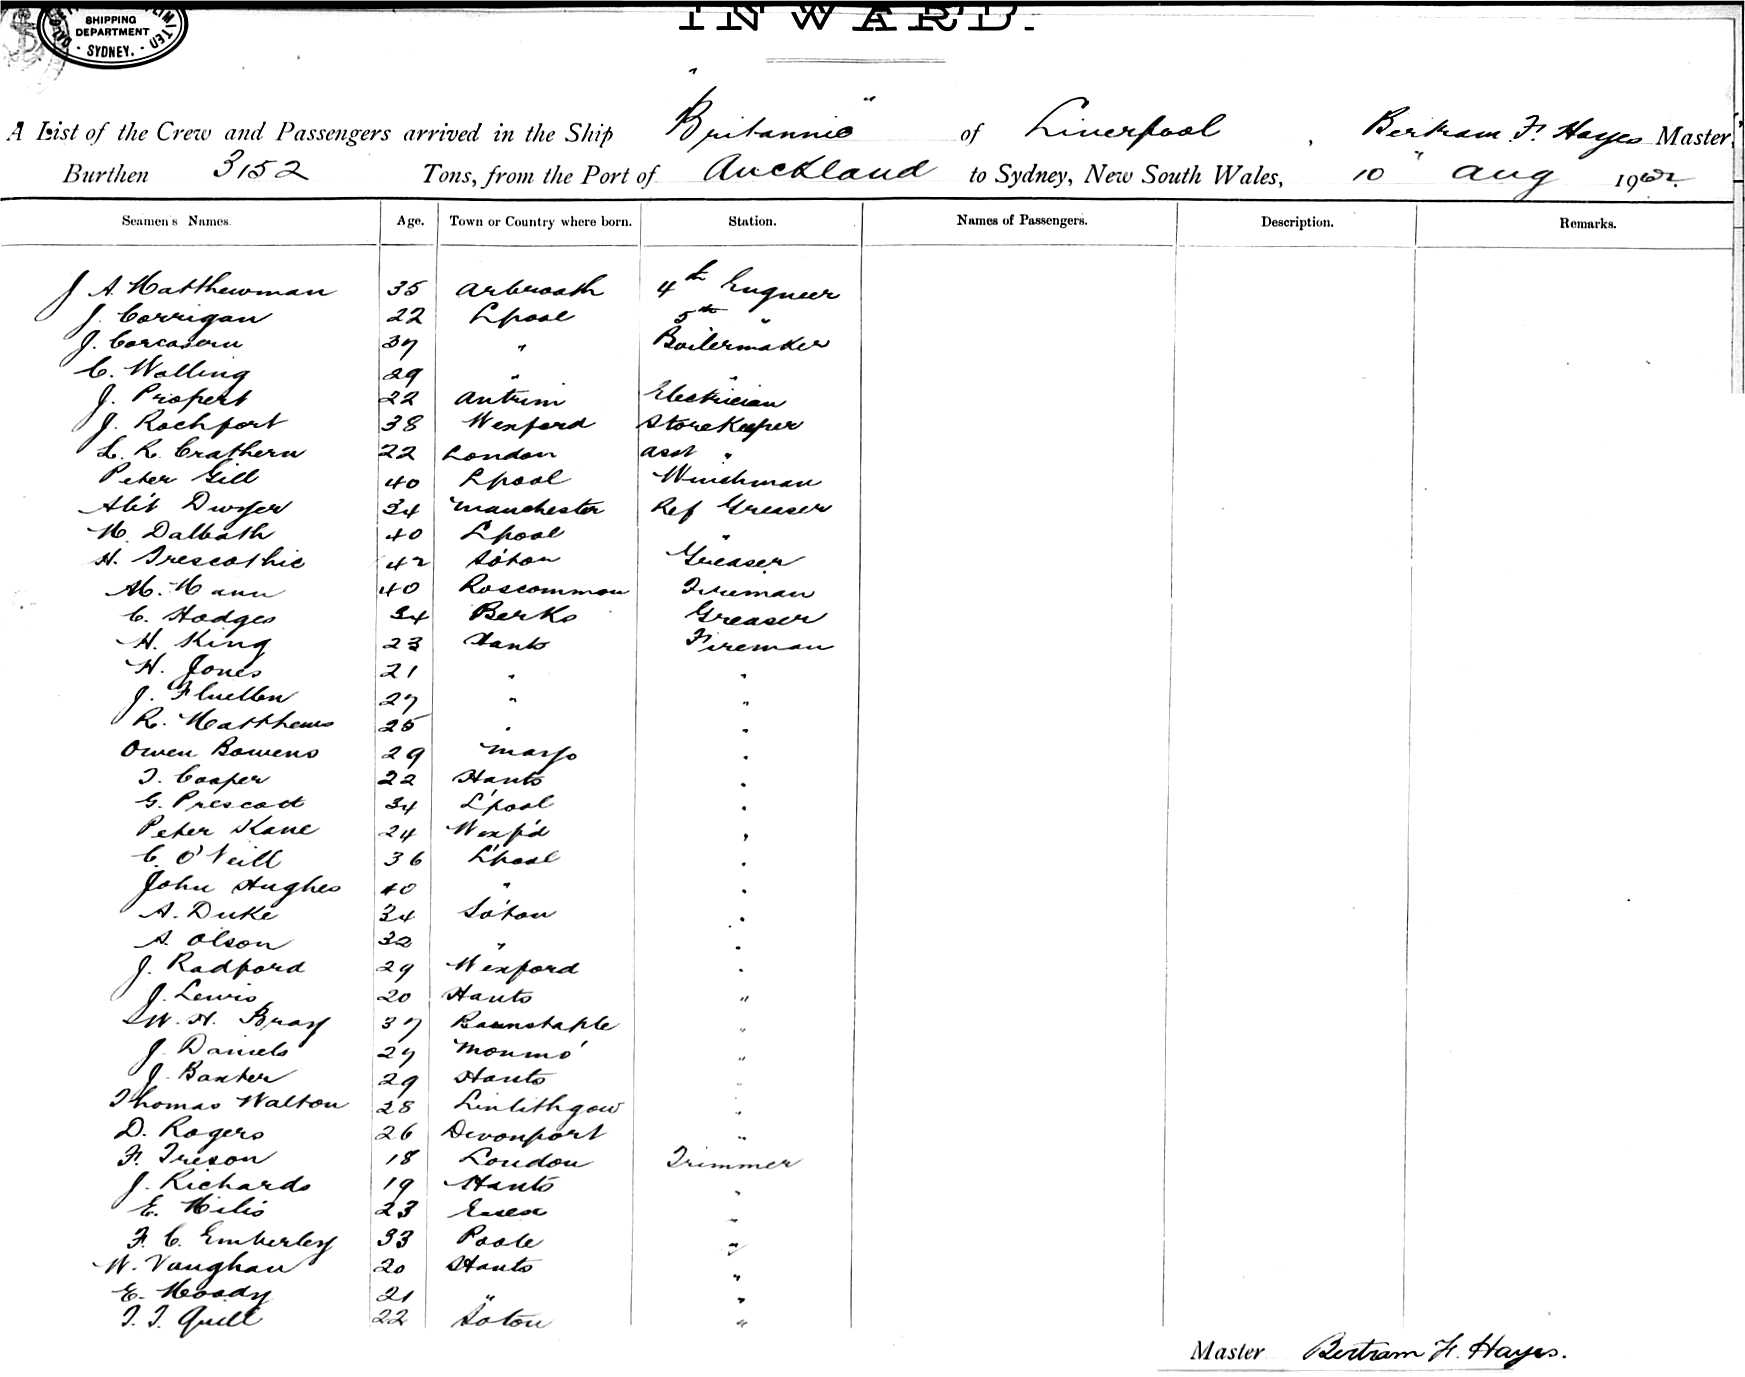 SHIPPING
DEPARTMENT
SYDNEY.
INWARD.
A List of the Crew and Passengers arrived in the Ship "Britannic" of Liverpool, Bertram F. Hayes Master,
Burthen 3152 Tons, from the Port of Auckland to Sydney, New South Wales, 10" Aug 1902.
Seamen's Names. Age. Town or Country where born. Station. Names of Passengers. Description. Remarks.
J A. Matthewman 35 Arbroath 4th Engineer
J. Corrigan 22 L'pool 5th "
J. 37 " Boilermaker
C. Walling 29 " "
J. Propert 22 Antrim Electrician
J. Rochfort 38 Wexford Storekeeper
L. R. Crathern 22 London Asst "
Peter Gill 40 L'pool Winchman
Alb't Dwyer 34 Manchester Ref Greaser
M. Dalbath 40 L'pool "
H. Trescothic 42 So'ton Greaser
M. Mann 40 Roscommon Fireman
C. Hodges 34 Berks Greaser
H. King 23 Hants Fireman
H. Jones 21 " "
J. Fluellen 27 " "
R. Matthews 25 " "
Owen Bowens 29 Mayo "
T. Cooper 22 Hants "
G. Prescott 34 L'pool "
Peter Kane 24 Wexf'd "
C. O'Neill 36 L'pool "
John Hughes 40 " "
A. Duke 34 So'ton "
A. Olson 32 " "
J. Radford 29 Wexford "
J. Lewis 20 Hants "
W. H. Bray 37 Barnstaple "
J. Daniels 27 Monmo' "
J. Baxter 29 Hants "
Thomas Walton 28 Linlithgow "
D. Rogers 26 Devonport "
F. Treson 18 London Trimmer
J. Richards 19 Hants "
E. 23 Essex "
F. C. Emberley 33 Poole "
W. Vaughan 20 Hants "
E. Moody 21 " "
T. J. Quill 22 So'ton "
Master Bertram F. Hayes.